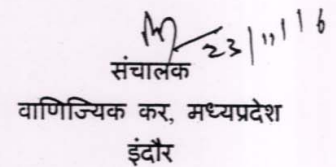 23/11/16
संचालक
वाणिज्यिक कर, मध्यप्रदेश
इंदौर